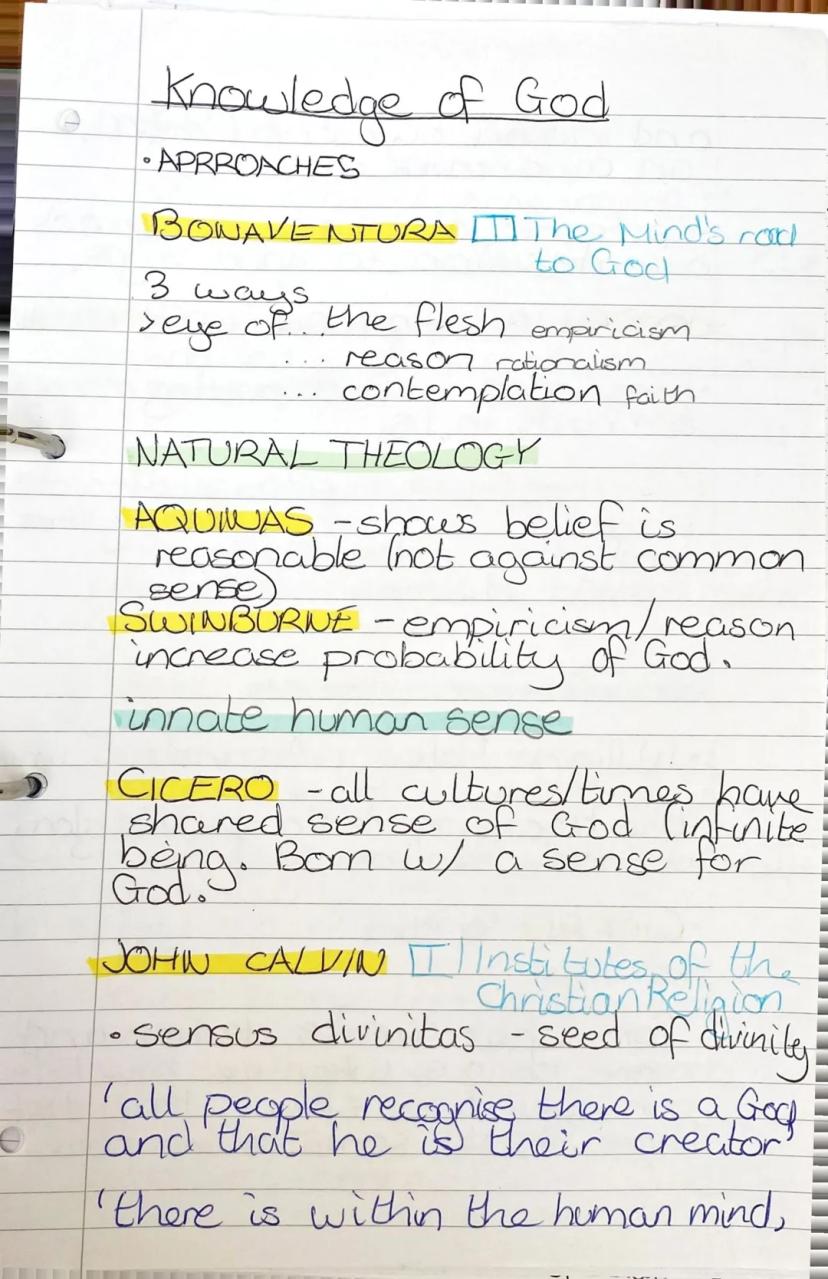 Knowledge of God
• APRROACHES
BONAVENTURA The Mind's road
to God
3 ways
>eye of... the flesh empiricism
... reason rationalism
... contemplation faith
NATURAL THEOLOGY
AQUINAS - shows belief is
reasonable (not against common
sense)
SWINBURNE - empiricism/reason
increase probability of God.
innate human sense
CICERO - all cultures/times have
shared sense of God (infinite
being. Born w/ a sense for
God.
JOHN CALVIN Institutes of the
Christian Religion
• sensus divinitas - seed of divinity
'all people recognise there is a God
and that he is their creator'
'there is within the human mind,